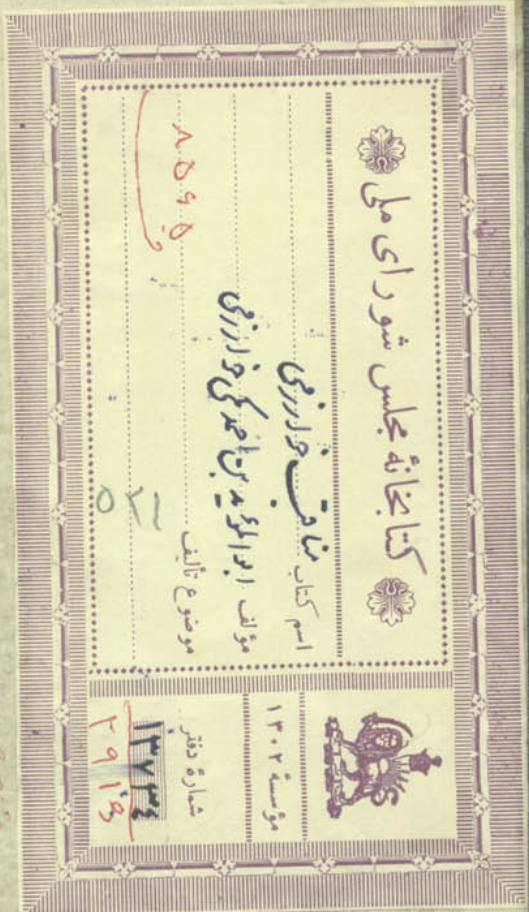 کتابخانهٔ مجلس شورای ملی
اسم کتاب مناقب خوارزمی
مؤلف ابوالمؤید بن احمد مکی خوارزمی
موضوع تألیف
۸۵۶۵
۵۲۱
مؤسسهٔ ۱۳۰۲
شمارهٔ دفتر
۱۳۷۳۴
۲۹۱۶